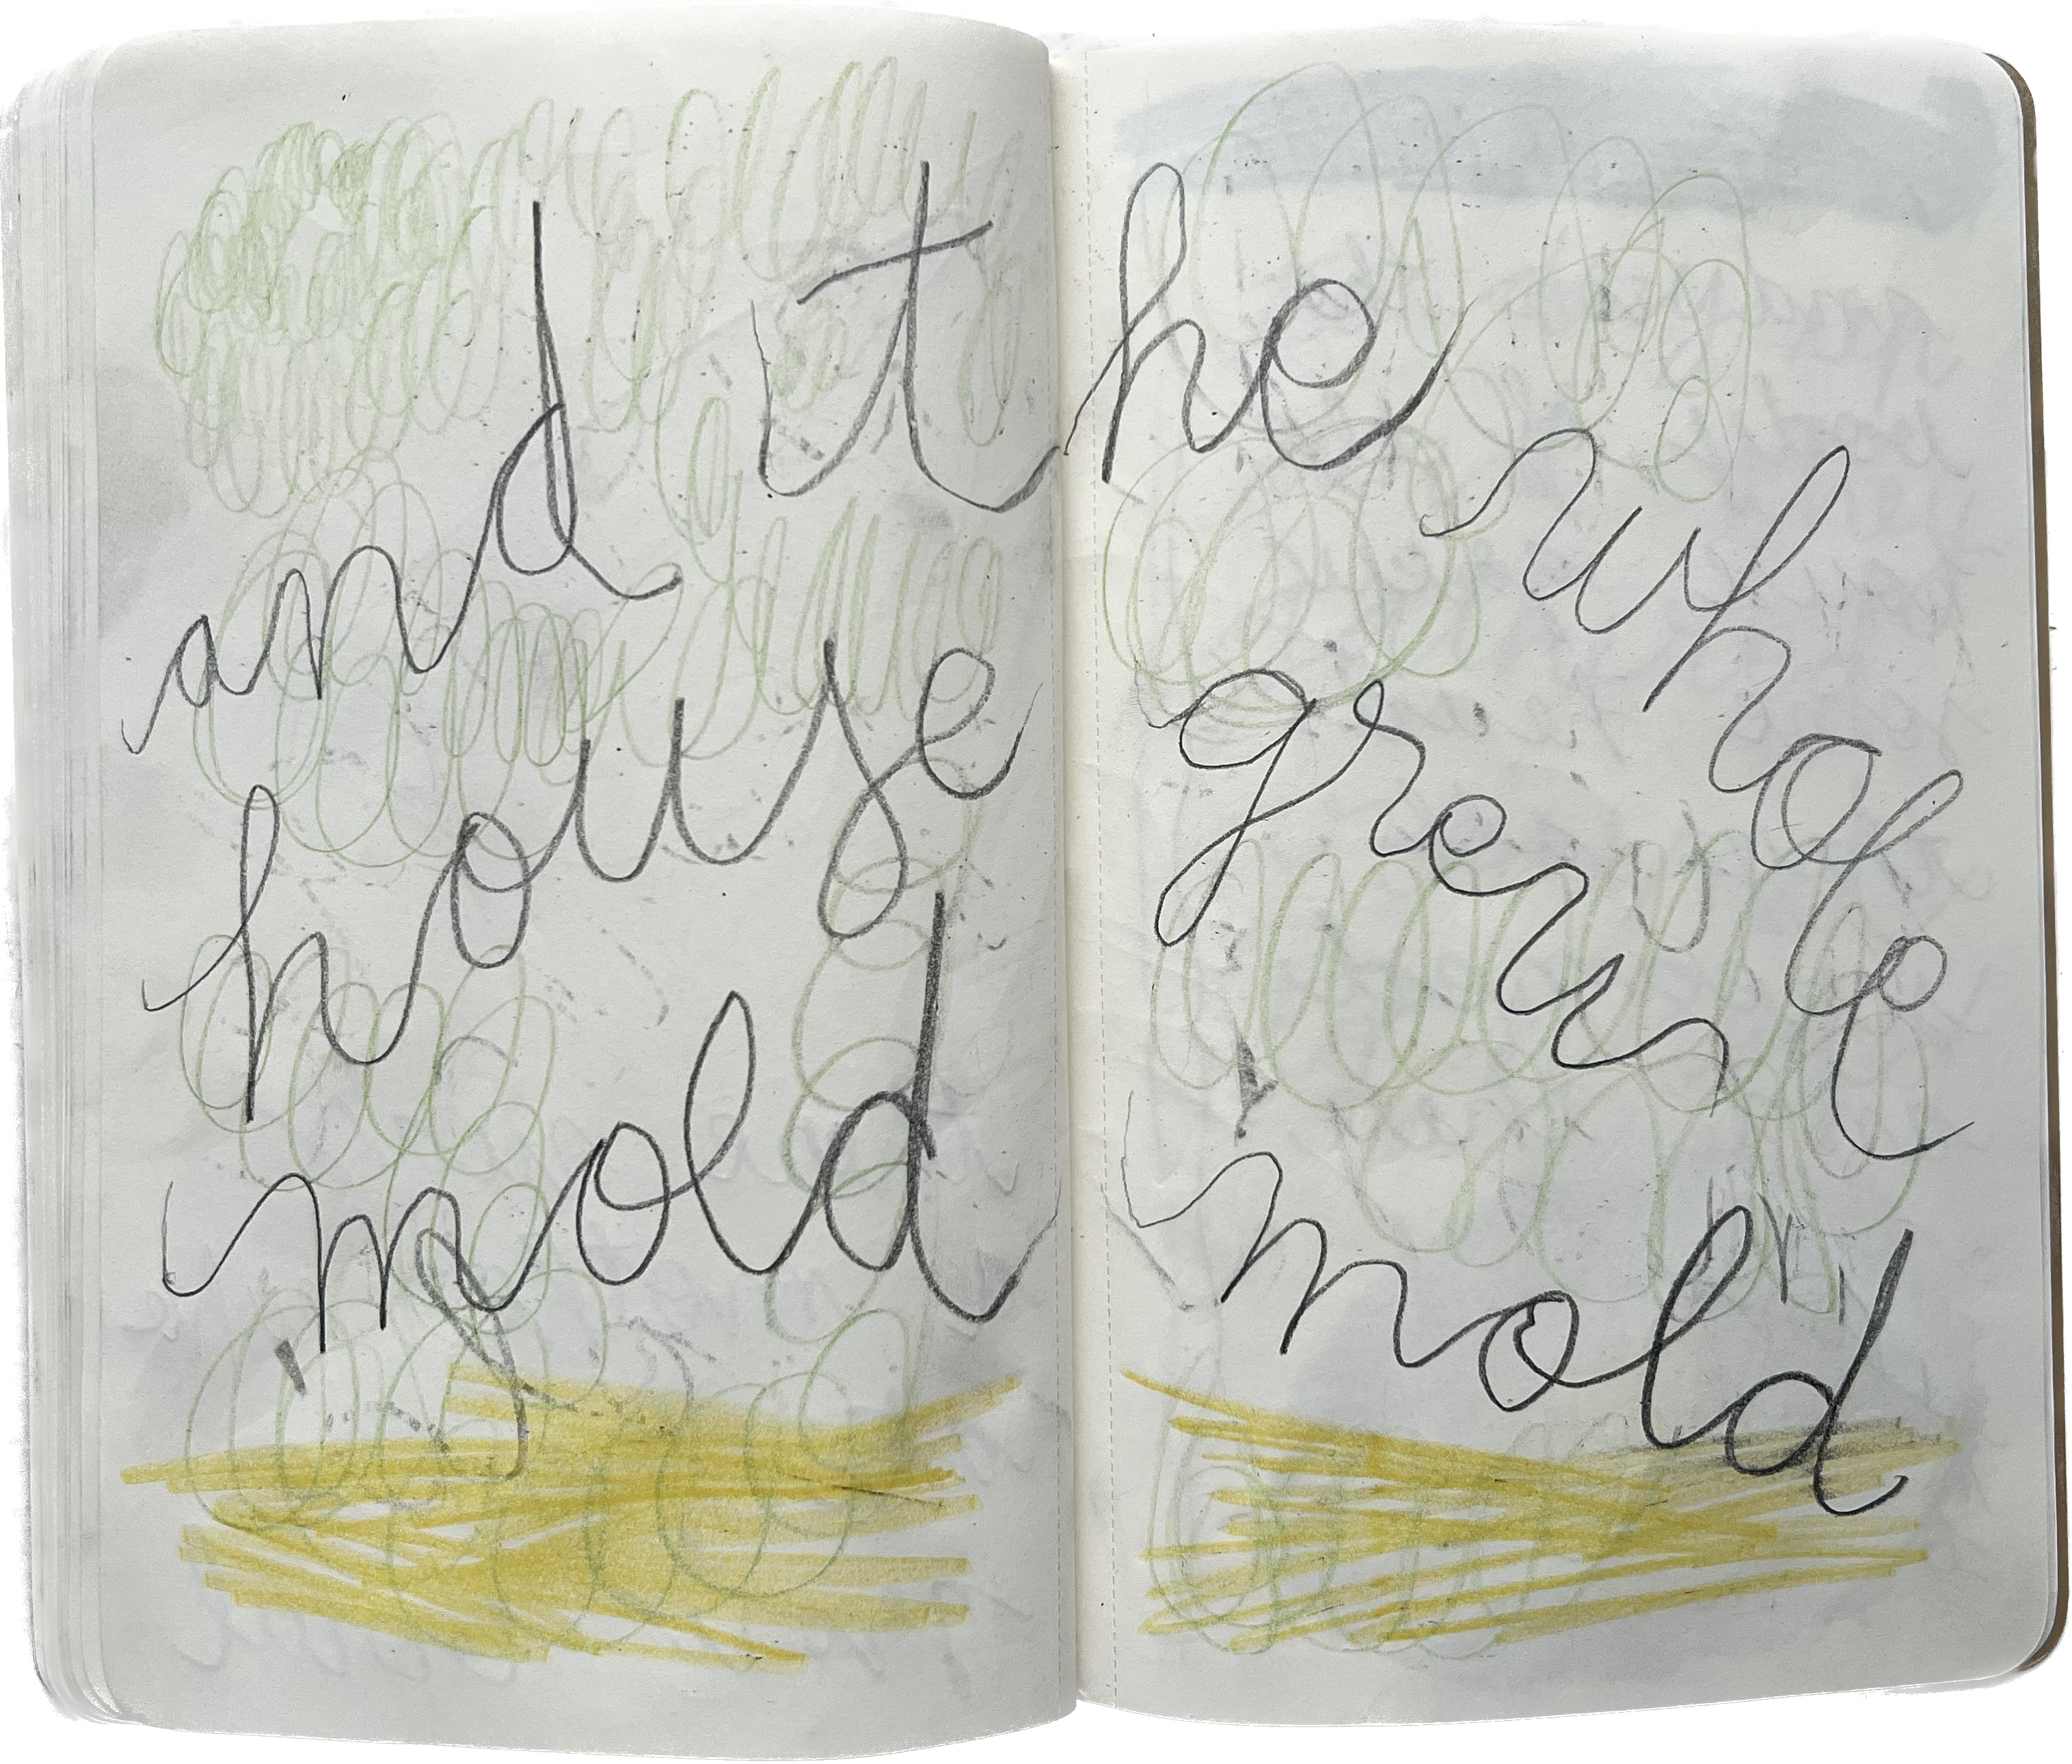 and the whole
house grew
mold mold